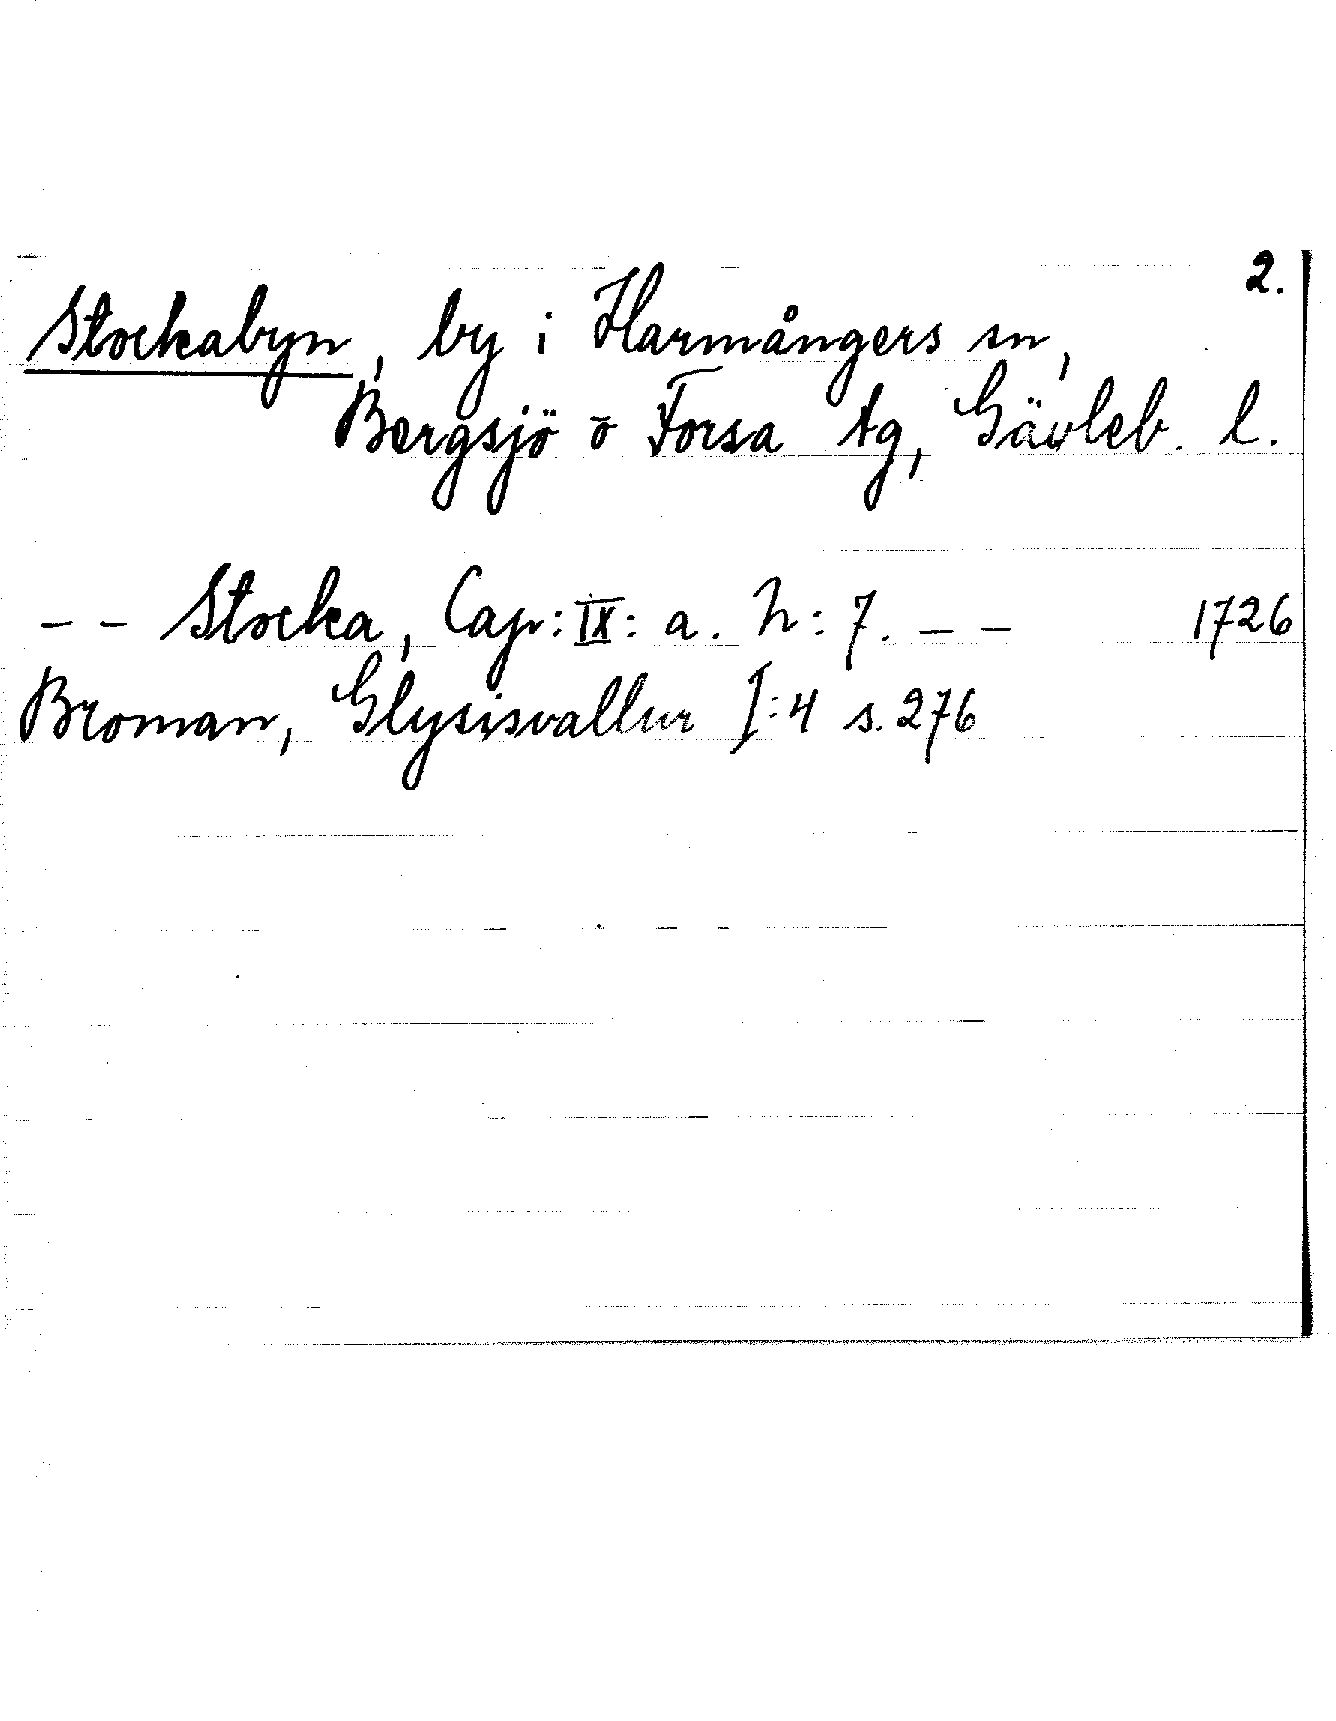 2.
Stockabyn, by i Harmångers sn,
Bergsjö o Forsa tg, Gävleb. l.
-- Stocka, Cap: IX: a. n: 7. -- 1726
Broman, Glysisvallur I:4 s. 276